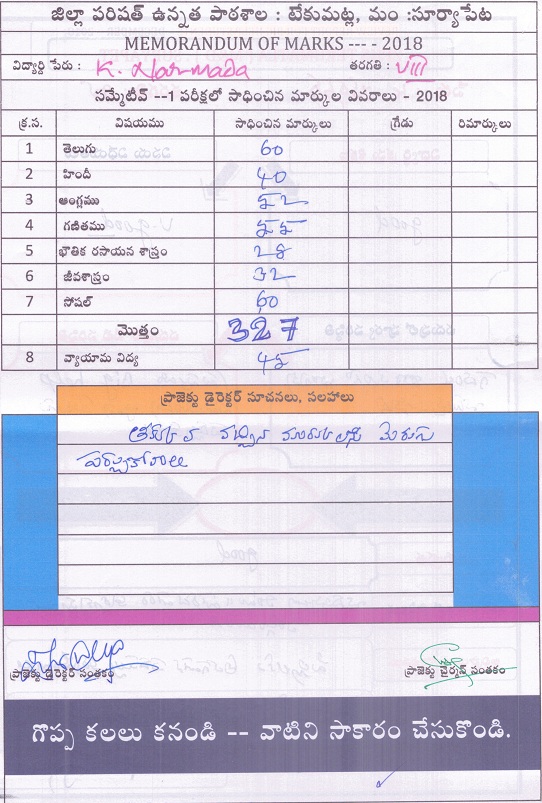 జిల్లా పరిషత్ ఉన్నత పాఠశాల : టేకుమట్ల, మం :సూర్యాపేట
MEMORANDUM OF MARKS --- - 2018
విద్యార్థి పేరు : K. Narmada తరగతి : VIII
సమ్మేటీవ్ --1 పరీక్షలో సాధించిన మార్కుల వివరాలు - 2018
క్ర.స. విషయము సాధించిన మార్కులు గ్రేడు రిమార్కులు
1 తెలుగు 60
2 హిందీ 40
3 ఆంగ్లము 52
4 గణితము 55
5 భౌతిక రసాయన శాస్త్రం 28
6 జీవశాస్త్రం 32
7 సోషల్ 60
మొత్తం 327
8 వ్యాయామ విద్య 45
ప్రాజెక్టు డైరెక్టర్ సూచనలు, సలహాలు
తక్కువ వచ్చిన మెరుగు
పర్చుకోవాలి
ప్రాజెక్టు డైరెక్టర్ సంతకం ప్రాజెక్టు చైర్మన్ సంతకం
గొప్ప కలలు కనండి -- వాటిని సాకారం చేసుకొండి.